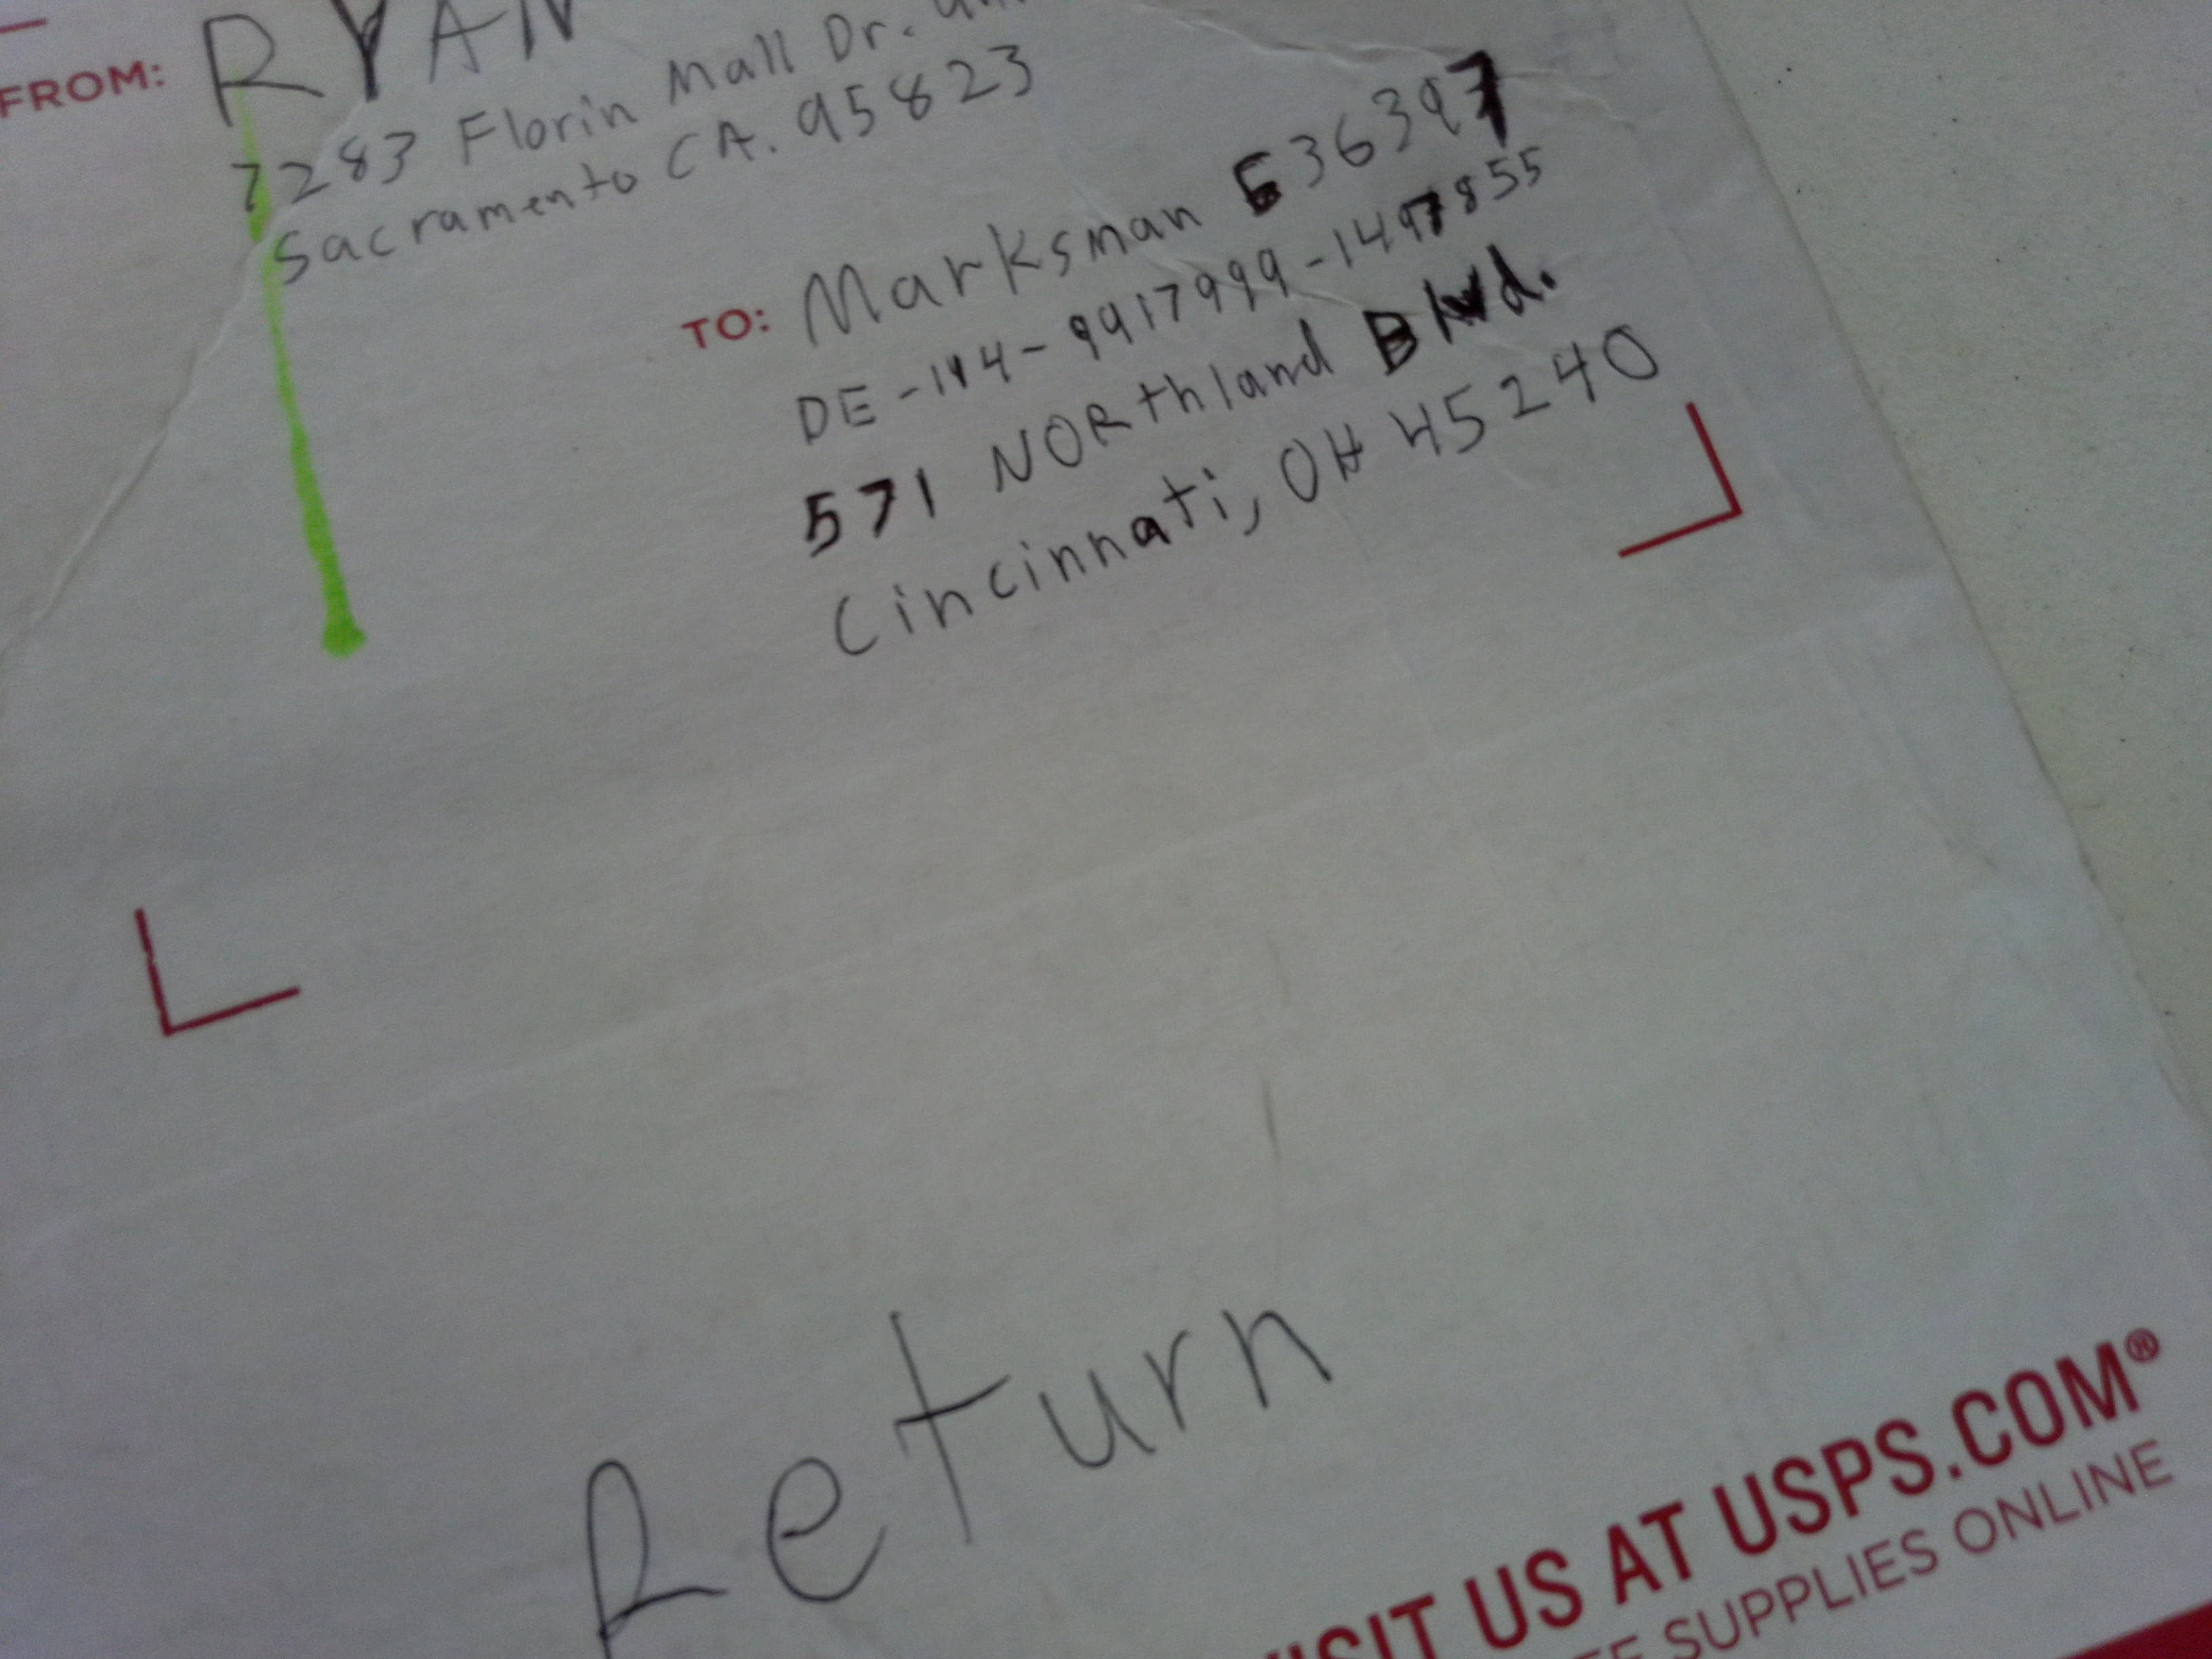 FROM: RYAN
7283 Florin Mall Dr.
Sacramento CA. 95823
TO: Marksman 636397
DE-144-9917999-1497855
571 NORthland Blvd.
Cincinnati, OH 45240
Return
VISIT US AT USPS.COM®
SUPPLIES ONLINE